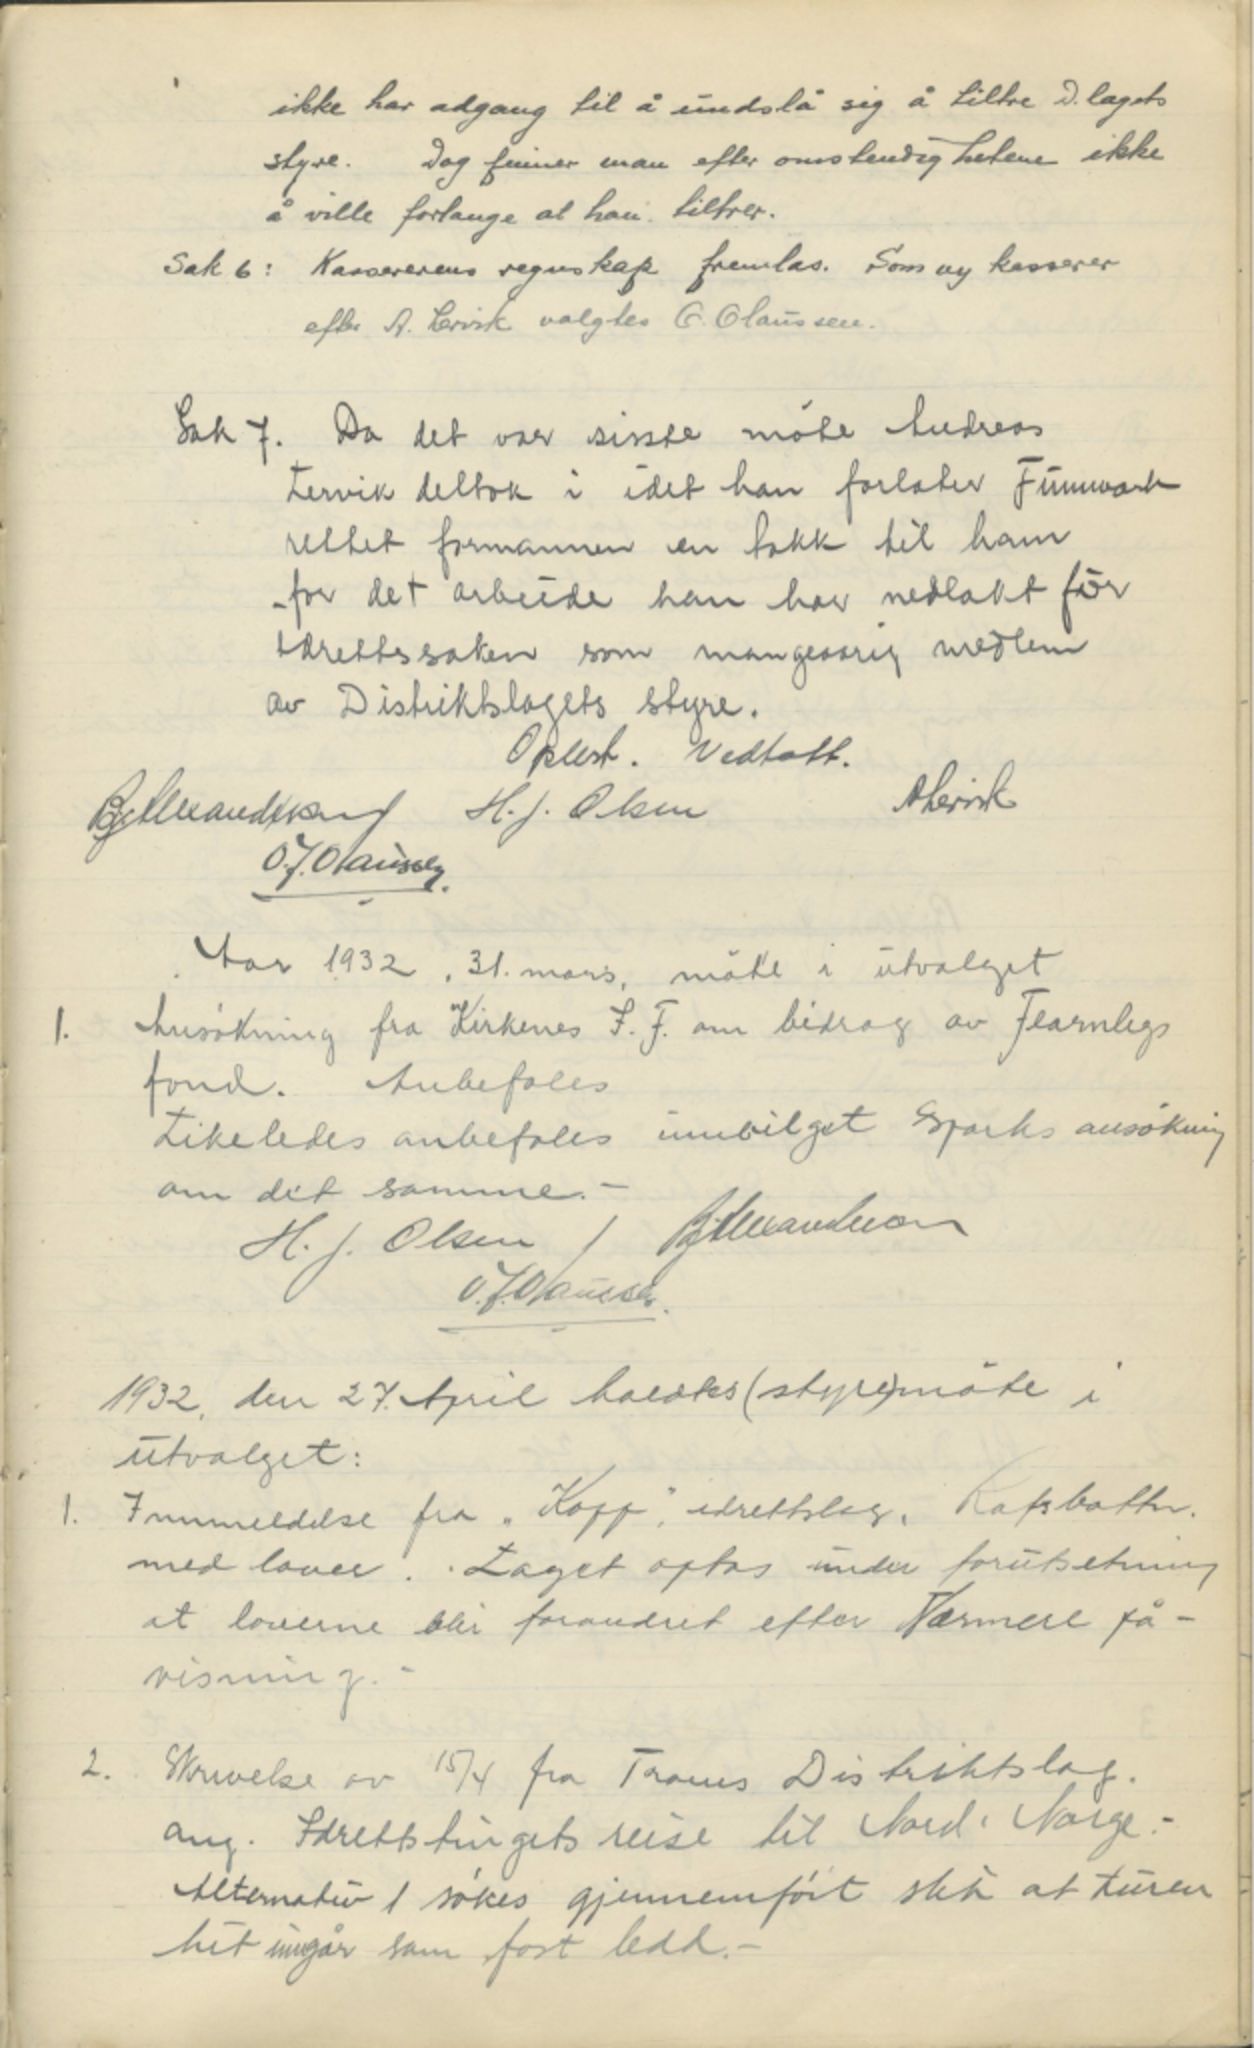 ikke har adgang til å undslå sig å tiltre D.lagets
styre. Dog finner man efter omstendighetene ikke
å ville forlange at han tiltrer.
Sak 6: Kassererens regnskap fremlas. Som ny kasserer
efter A. Lervik valgtes O. Olaussen.
Sak 7. Da det var sisste möte Andreas
Lervik deltok i idet han forlater Finnmark
rettet formannen en takk til ham
for det arbeide han har nedlakt for
idrettssaken som mangeaarig medlem
av Distriktslagets styre.
Oplest. Vedtatt.
Bj. Alexandersen H. J. Olsen A Lervik
O.J.Olaussen.
Aar 1932, 31. mars, möte i utvalget
1. Ansökning fra Kirkenes I. F. om bidrag av Fearnleys
fond. Anbefales
Likeledes anbefales innvilget Sparks ansökning
om det samme.-
H. J. Olsen / Bj. Alexandersen
O.J.Olaussen.
1932, den 27. April holdtes (styre)möte i
utvalget:
1. Innmeldelse fra "Kopp", idrettslag,
med lover. Laget optas under forutsetning
at loverne blir forandret efter Nærmere på-
visning.-
2. Skrivelse av 15/4 fra Troms Distriktslag.
ang. Idrettstingets reise til Nord-Norge.-
Alternativ 1 sökes gjennemfört slik at turen
hit inngår som fast ledd.-